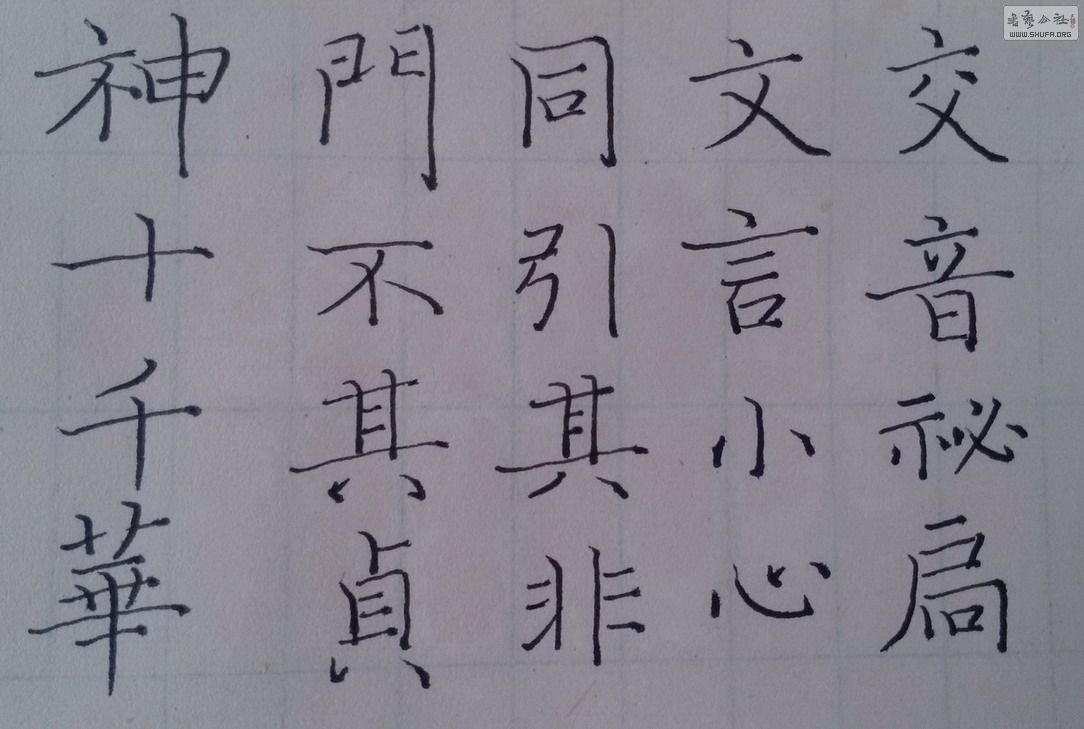 交音祕扃
文言小心
同引其非
門不其貞
神十千華
書藝公社
WWW.SHUFA.ORG